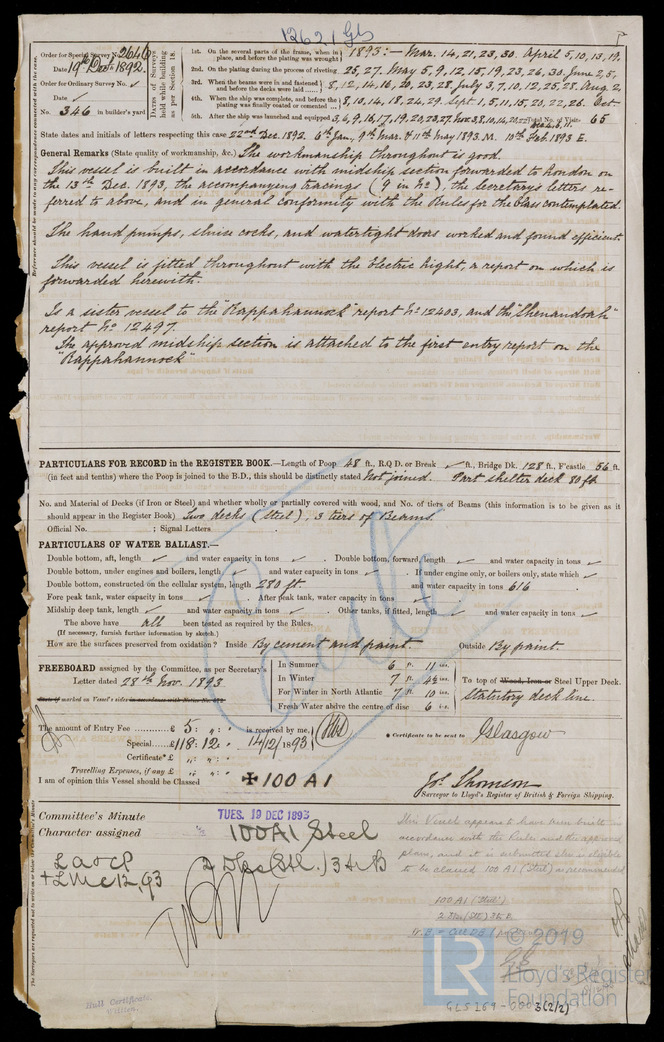 12621 Gls
Order for Special Survey No. 2646
Date 19th Dec 1892.
Order for Ordinary Survey No. ✓
Date ✓
No. 346 in builder's yard
Dates of Surveys held while building as per Section 18.
1st. On the several parts of the frame, when in place, and before the plating was wrought 1893:— Mar. 14, 21, 23, 30. April 5, 10, 13, 19,
2nd. On the plating during the process of riveting 25, 27. May 5, 9, 12, 15, 19, 23, 26, 30. June 2, 5,
3rd. When the beams were in and fastened, and before the decks were laid 8, 12, 14, 16, 20, 23, 28. July 3, 7, 10, 12, 25, 28. Aug. 2,
4th. When the ship was complete, and before the plating was finally coated or cemented 8, 10, 14, 18, 24, 29. Sept. 1, 5, 11, 15, 20, 22, 26. Oct.
5th. After the ship was launched and equipped 3, 6, 9, 16, 17, 19, 20, 23, 27. Nov. 3, 8, 10, 14, 20, 22 Dec 4, 6, 11. Total No. of Visits 65
State dates and initials of letters respecting this case 22nd Dec. 1892. 6th Jan., 9th Mar. & 11th May 1893. M. 10th Feb. 1893 E.
General Remarks (State quality of workmanship, &c.) The workmanship throughout is good.
This vessel is built in accordance with midship section forwarded to London on
the 13th Dec. 1893, the accompanying tracings (9 in No), the Secretary's letters re-
ferred to above, and in general conformity with the Rules for the Class contemplated.
The hand pumps, sluice cocks, and watertight doors worked and found efficient.
This vessel is fitted throughout with the Electric Light, a report on which is
forwarded herewith.
Is a sister vessel to the "Rappahannock" report No 12403, and the "Shenandoah"
report No 12497.
The approved midship section is attached to the first entry report on the
"Rappahannock"
PARTICULARS FOR RECORD in the REGISTER BOOK.—Length of Poop 48 ft., R.Q.D. or Break ✓ ft., Bridge Dk. 128 ft., F'castle 56 ft.
(in feet and tenths) where the Poop is joined to the B.D., this should be distinctly stated Not joined. Part shelter deck 80 ft
No. and Material of Decks (if Iron or Steel) and whether wholly or partially covered with wood, and No. of tiers of Beams (this information is to be given as it
should appear in the Register Book) Two decks (steel), 3 tiers of Beams.
Official No. ; Signal Letters
PARTICULARS OF WATER BALLAST.—
Double bottom, aft, length ✓ and water capacity in tons ✓. Double bottom, forward, length ✓ and water capacity in tons ✓
Double bottom, under engines and boilers, length ✓ and water capacity in tons ✓. If under engine only, or boilers only, state which ✓
Double bottom, constructed on the cellular system, length 280 ft. and water capacity in tons 616
Fore peak tank, water capacity in tons ✓. After peak tank, water capacity in tons ✓.
Midship deep tank, length ✓ and water capacity in tons ✓. Other tanks, if fitted, length ✓ and water capacity in tons ✓
The above have all been tested as required by the Rules.
(If necessary, furnish further information by sketch.)
How are the surfaces preserved from oxidation? Inside By cement and paint. Outside By paint.
FREEBOARD assigned by the Committee, as per Secretary's
Letter dated 28th Nov. 1893
In Summer 6 ft. 11 ins.
In Winter 7 ft. 4½ ins.
For Winter in North Atlantic 7 ft. 10 ins.
Fresh Water above the centre of disc 6 ins.
To top of Wood, Iron or Steel Upper Deck.
Statutory deck line.
The amount of Entry Fee £ 5 : " : " is received by me,
Special £118 : 12 : " 14/12/1893
Certificate* £ " : " : "
Travelling Expenses, if any £ " : " : "
* Certificate to be sent to Glasgow
I am of opinion this Vessel should be Classed ✠ 100 A1
Jos. Thomson
Surveyor to Lloyd's Register of British & Foreign Shipping.
Committee's Minute
TUES. 19 DEC 1893
Character assigned 100A1 Steel
2 Dks (Stl.) 3 tr B
+ LMC 12,93
This Vessel appears to have been built in
accordance with the Rules and the approved
plans, and it is submitted she is eligible
to be classed 100 A1 (Steel) as recommended
100 A1 (Steel)
Hull Certificate.
Written.
LR
© 2019
Lloyd's Register
Foundation
GLS 169-0003(2/2)